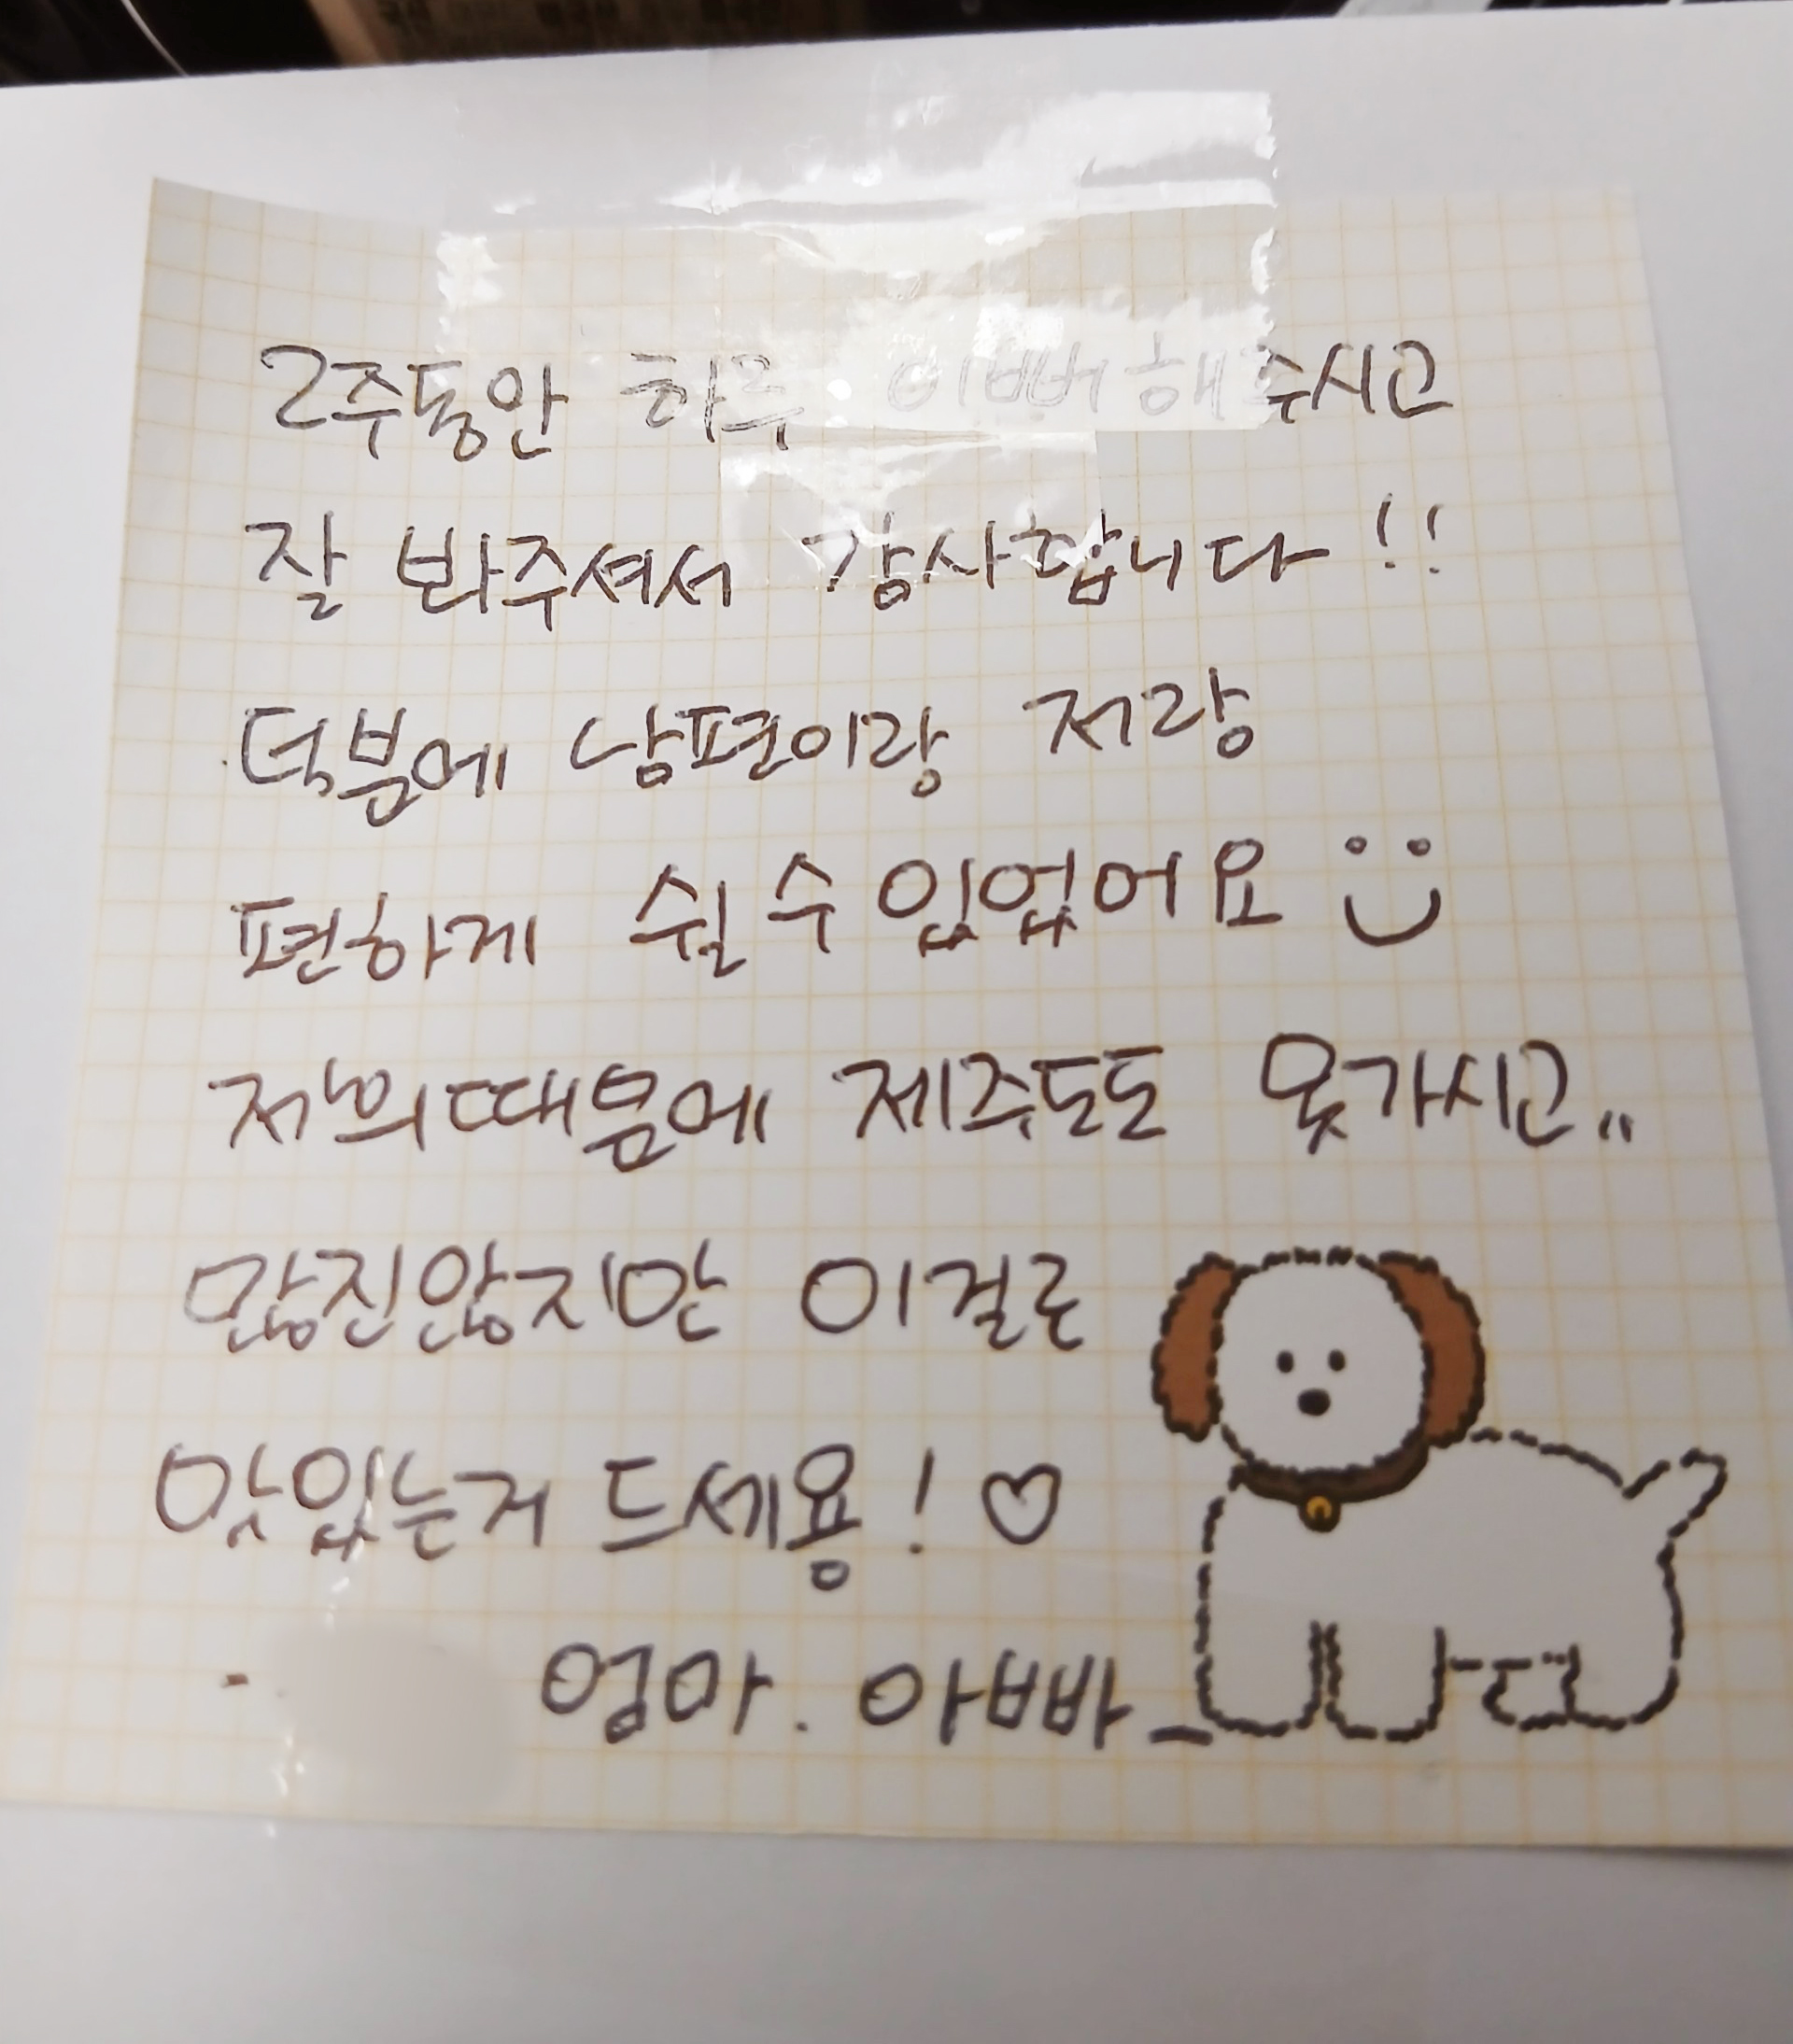 2주동안 하루 이뻐해주시고
잘 봐주셔서 감사합니다!!
덕분에 남편이랑 저랑
편하게 쉴 수 있었어요
저희때문에 제주도도 못가시고..
많진않지만 이걸로
맛있는거 드세용! ♡
- 엄마. 아빠 -